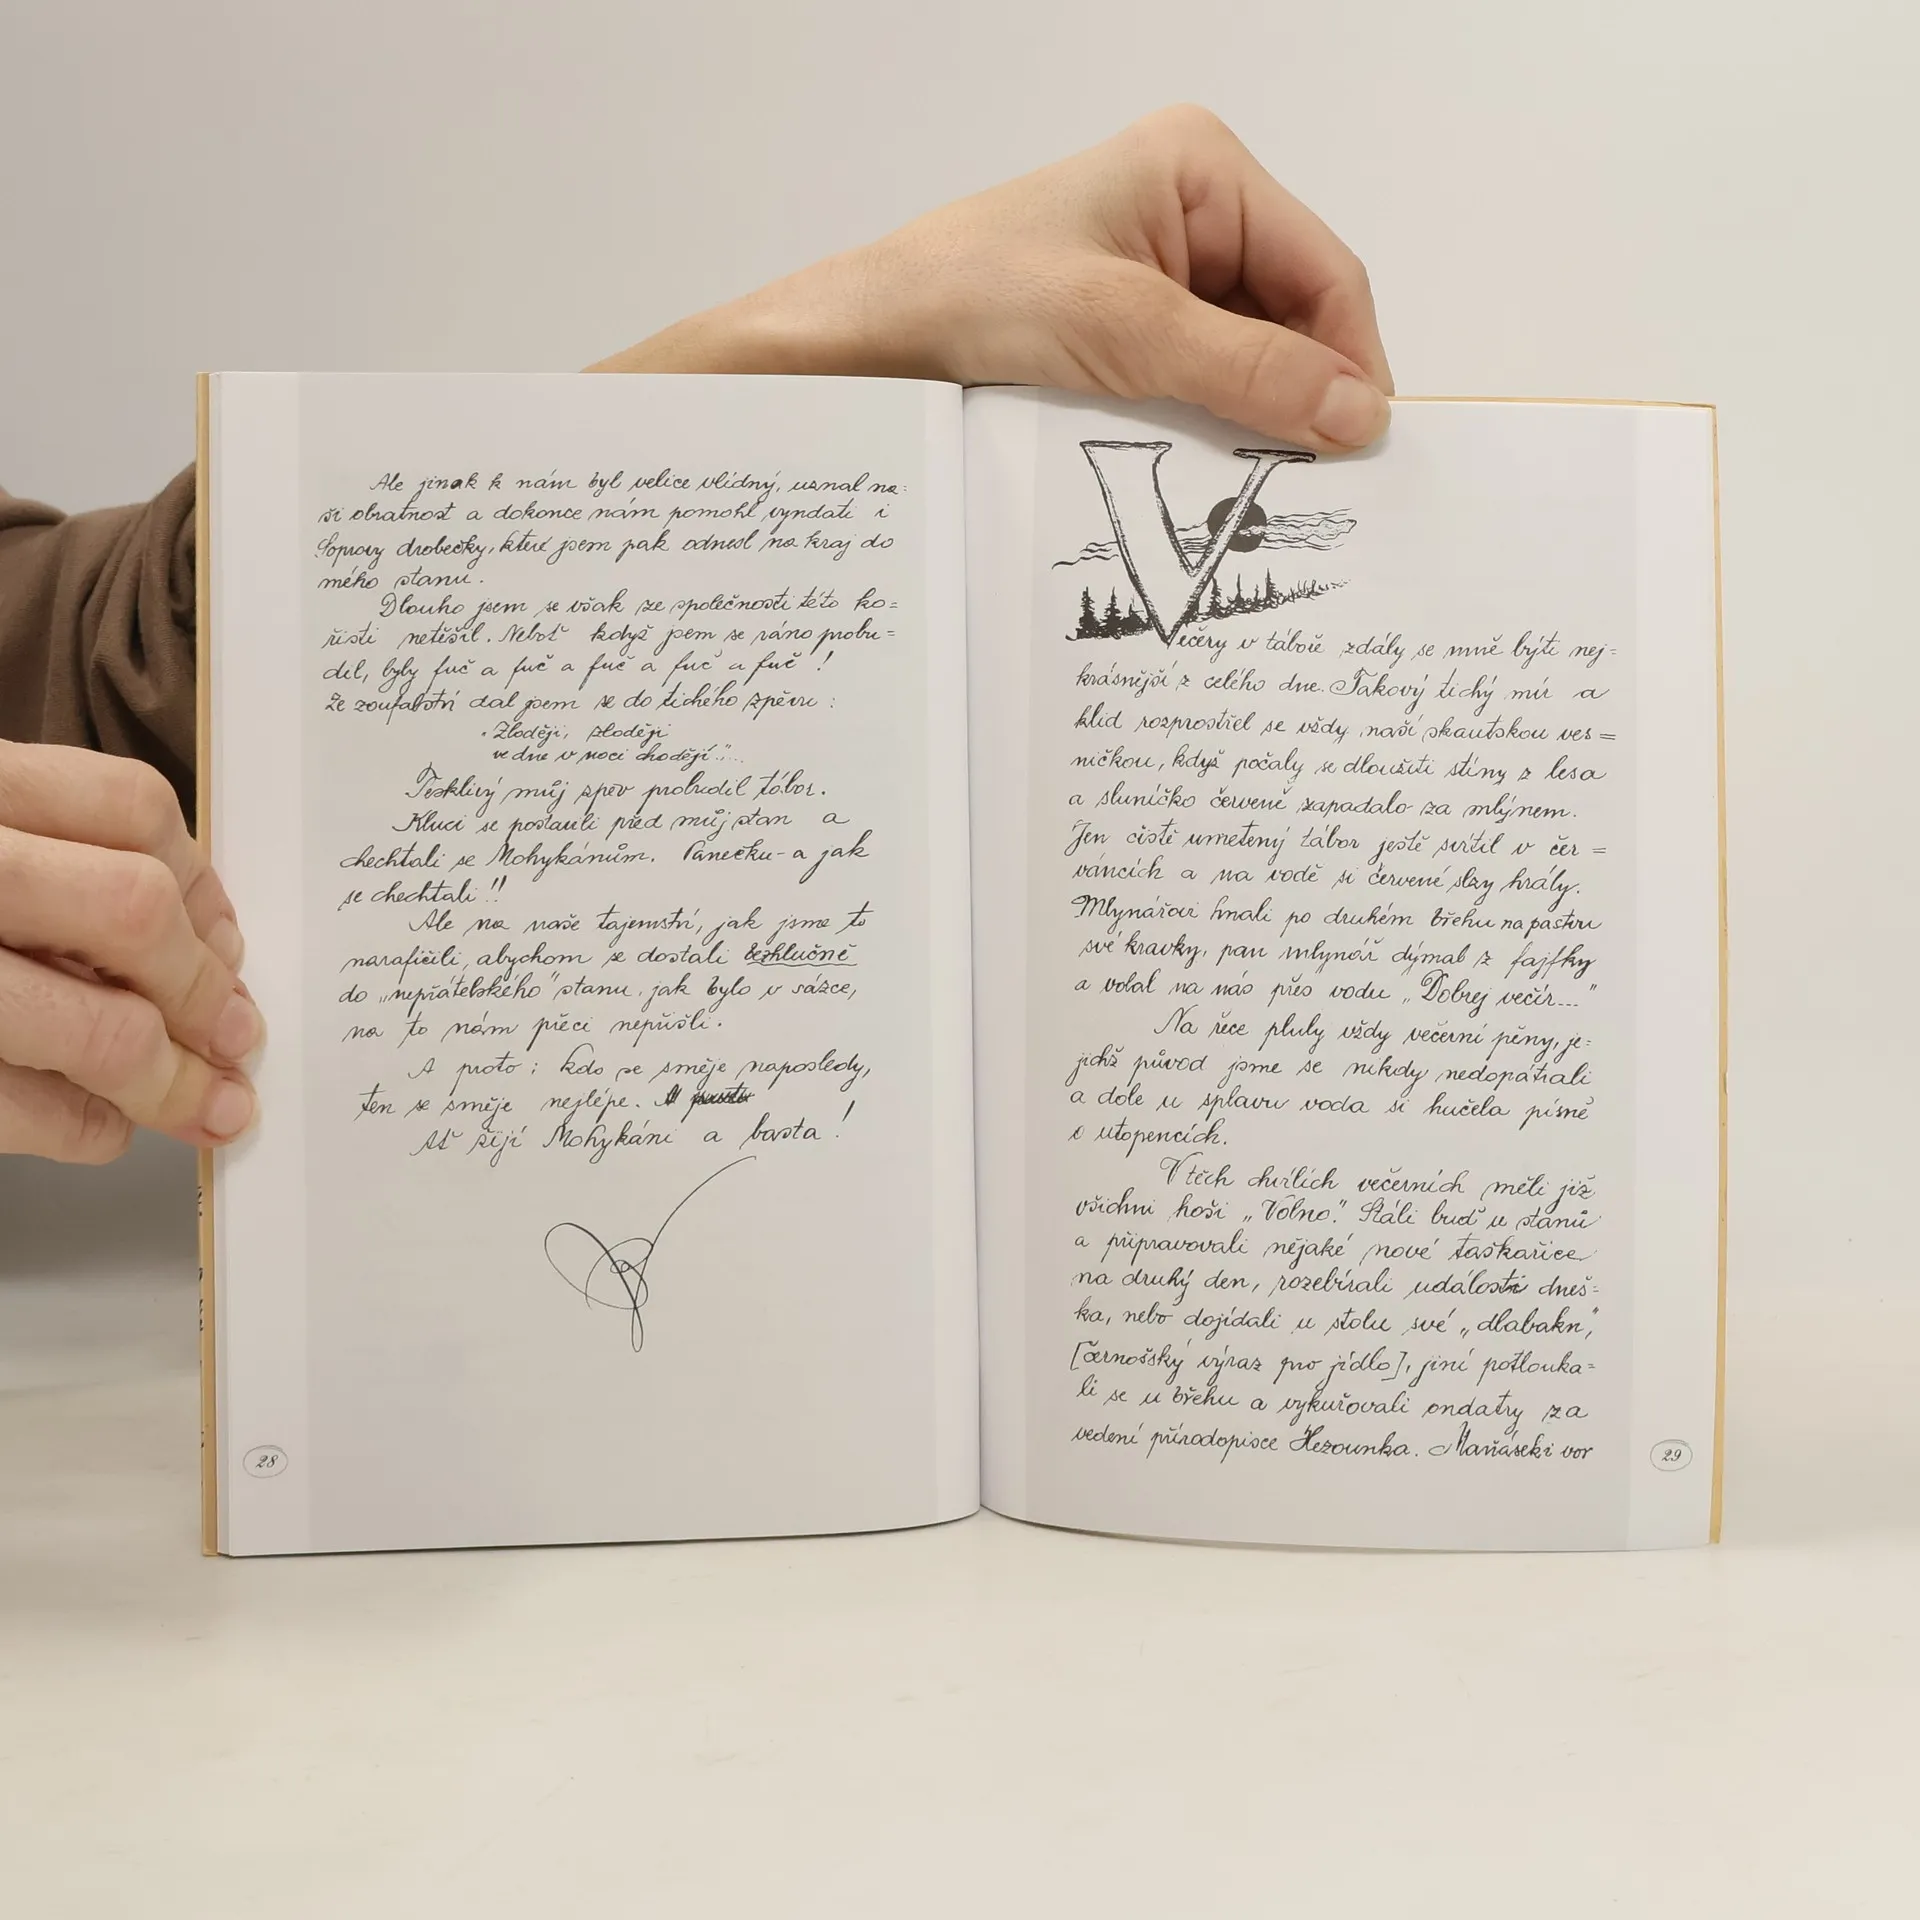 Ale jinak k nám byl velice vlídný, uznal na=
ši obratnost a dokonce nám pomohl vyndati i
Soptovy drobečky, které jsem pak odnesl na kraj do
mého stanu.
Dlouho jsem se však ze společnosti této ko=
řisti netěšil. Neboť když jsem se ráno probu=
dil, byly fuč a fuč a fuč a fuč a fuč!
Ze zoufalství dal jsem se do tichého zpěvu:
"Zloději, zloději
ve dne v noci chodějí"....
Tesklivý můj zpěv probudil tábor.
Kluci se postavili před můj stan a
chechtali se Mohykánům. Panečku - a jak
se chechtali!!
Ale na naše tajemství, jak jsme to
narafičili, abychom se dostali bezhlučně
do „nepřátelského" stanu, jak bylo v sázce,
na to nám přeci nepřišli.
A proto: kdo se směje naposledy,
ten se směje nejlépe.
Ať žijí Mohykáni a basta!
28
Večery v táboře zdály se mně býti nej=
krásnější z celého dne. Takový tichý mír a
klid rozprostřel se vždy naší skautskou ves=
ničkou, když počaly se dloužiti stíny z lesa
a sluníčko červeně zapadalo za mlýnem.
Jen čistě umetený tábor ještě svítil v čer=
váncích a na vodě si červené slzy hrály.
Mlynářovi hnali po druhém břehu na pastvu
své kravky, pan mlynář dýmal z fajfky
a volal na nás přes vodu „Dobrej večír..."
Na řece pluly vždy večerní pěny, je=
jichž původ jsme se nikdy nedopátrali
a dole u splavu voda si hučela písně
o utopencích.
V těch chvílích večerních měli již
všichni hoši „Volno". Stáli buď u stanů
a připravovali nějaké nové taškařice
na druhý den, rozebírali události dneš=
ka, nebo dojídali u stolu své „dlabakn",
[černošský výraz pro jídlo], jiní potlouka=
li se u břehu a vykuřovali ondatry za
vedení přírodopisce Hezounka. Maňáseki vor
29